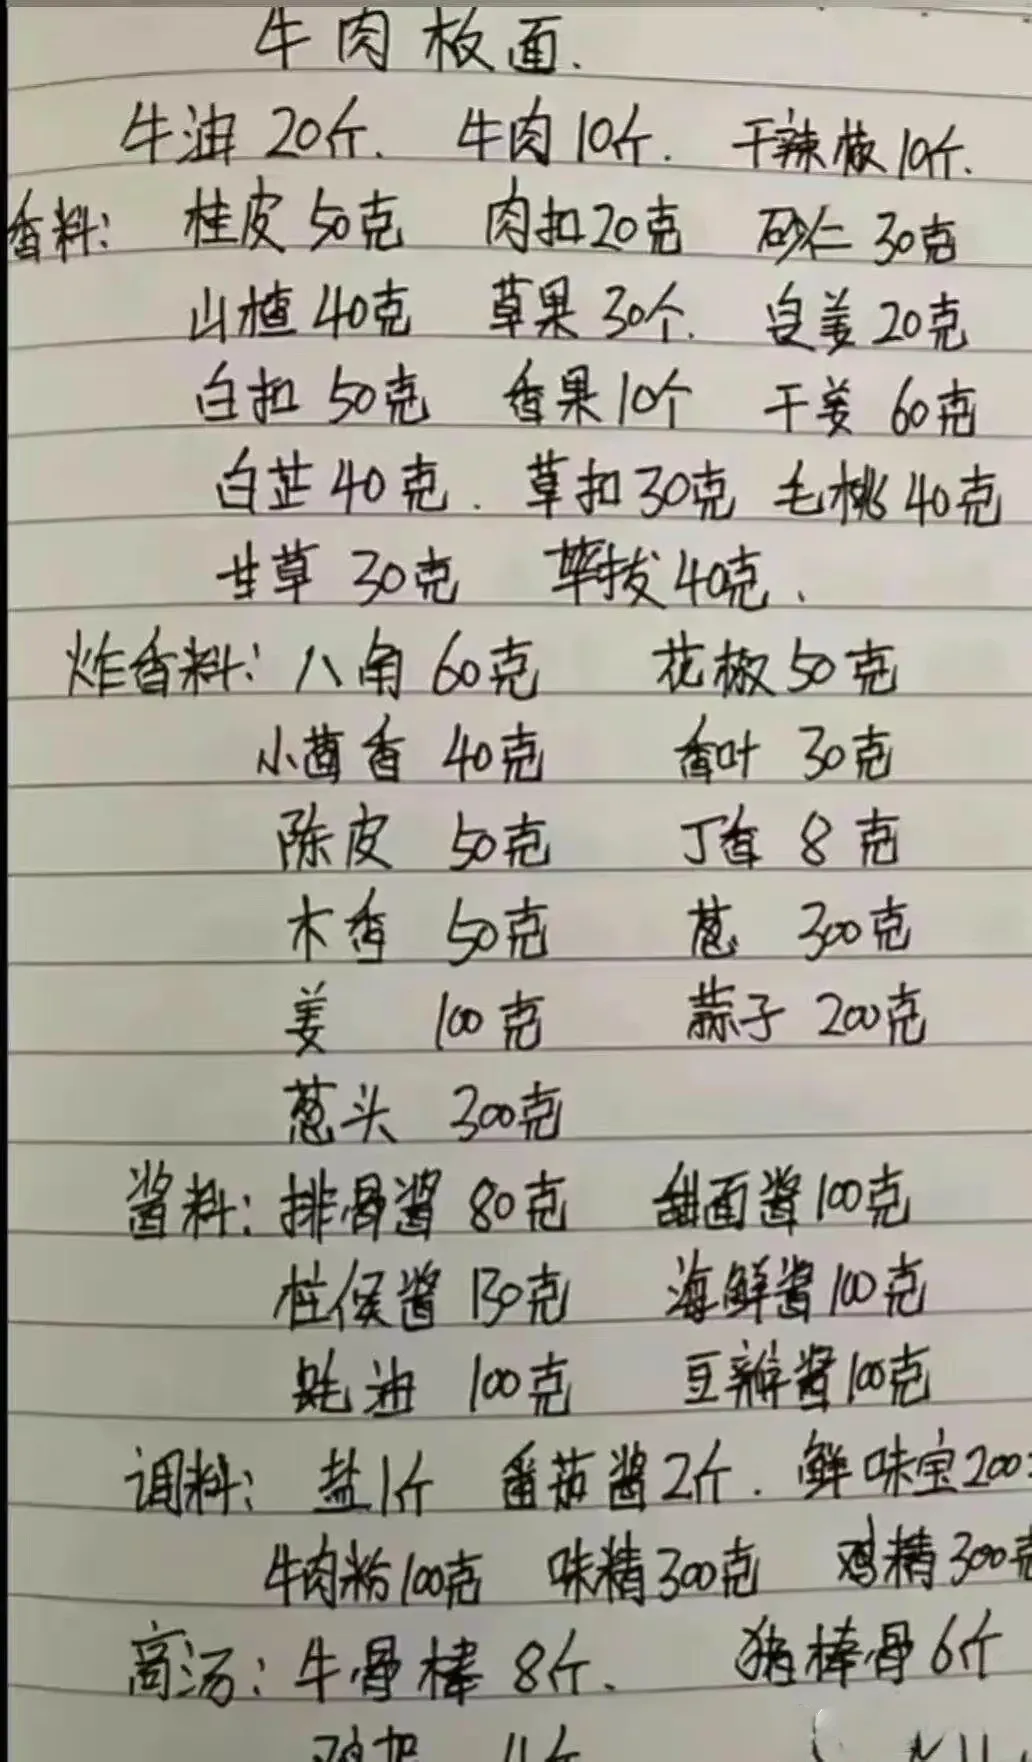 牛肉板面.
牛油 20斤. 牛肉10斤. 干辣椒10斤.
香料: 桂皮 50克 肉扣20克 砂仁 30克
山楂 40克 草果 30个. 良姜 20克
白扣 50克 香果10个 干姜 60克
白芷 40克. 草扣30克 毛桃 40克
甘草 30克 荜拔 40克.
炸香料: 八角 60克 花椒 50克
小茴香 40克 香叶 30克
陈皮 50克 丁香 8克
木香 50克 葱 300克
姜 100克 蒜子 200克
葱头 300克
酱料: 排骨酱 80克 甜面酱100克
柱侯酱 130克 海鲜酱100克
蚝油 100克 豆瓣酱100克
调料: 盐1斤 番茄酱2斤. 鲜味宝200
牛肉粉100克 味精300克 鸡精300克
高汤: 牛骨棒 8斤. 猪棒骨 6斤